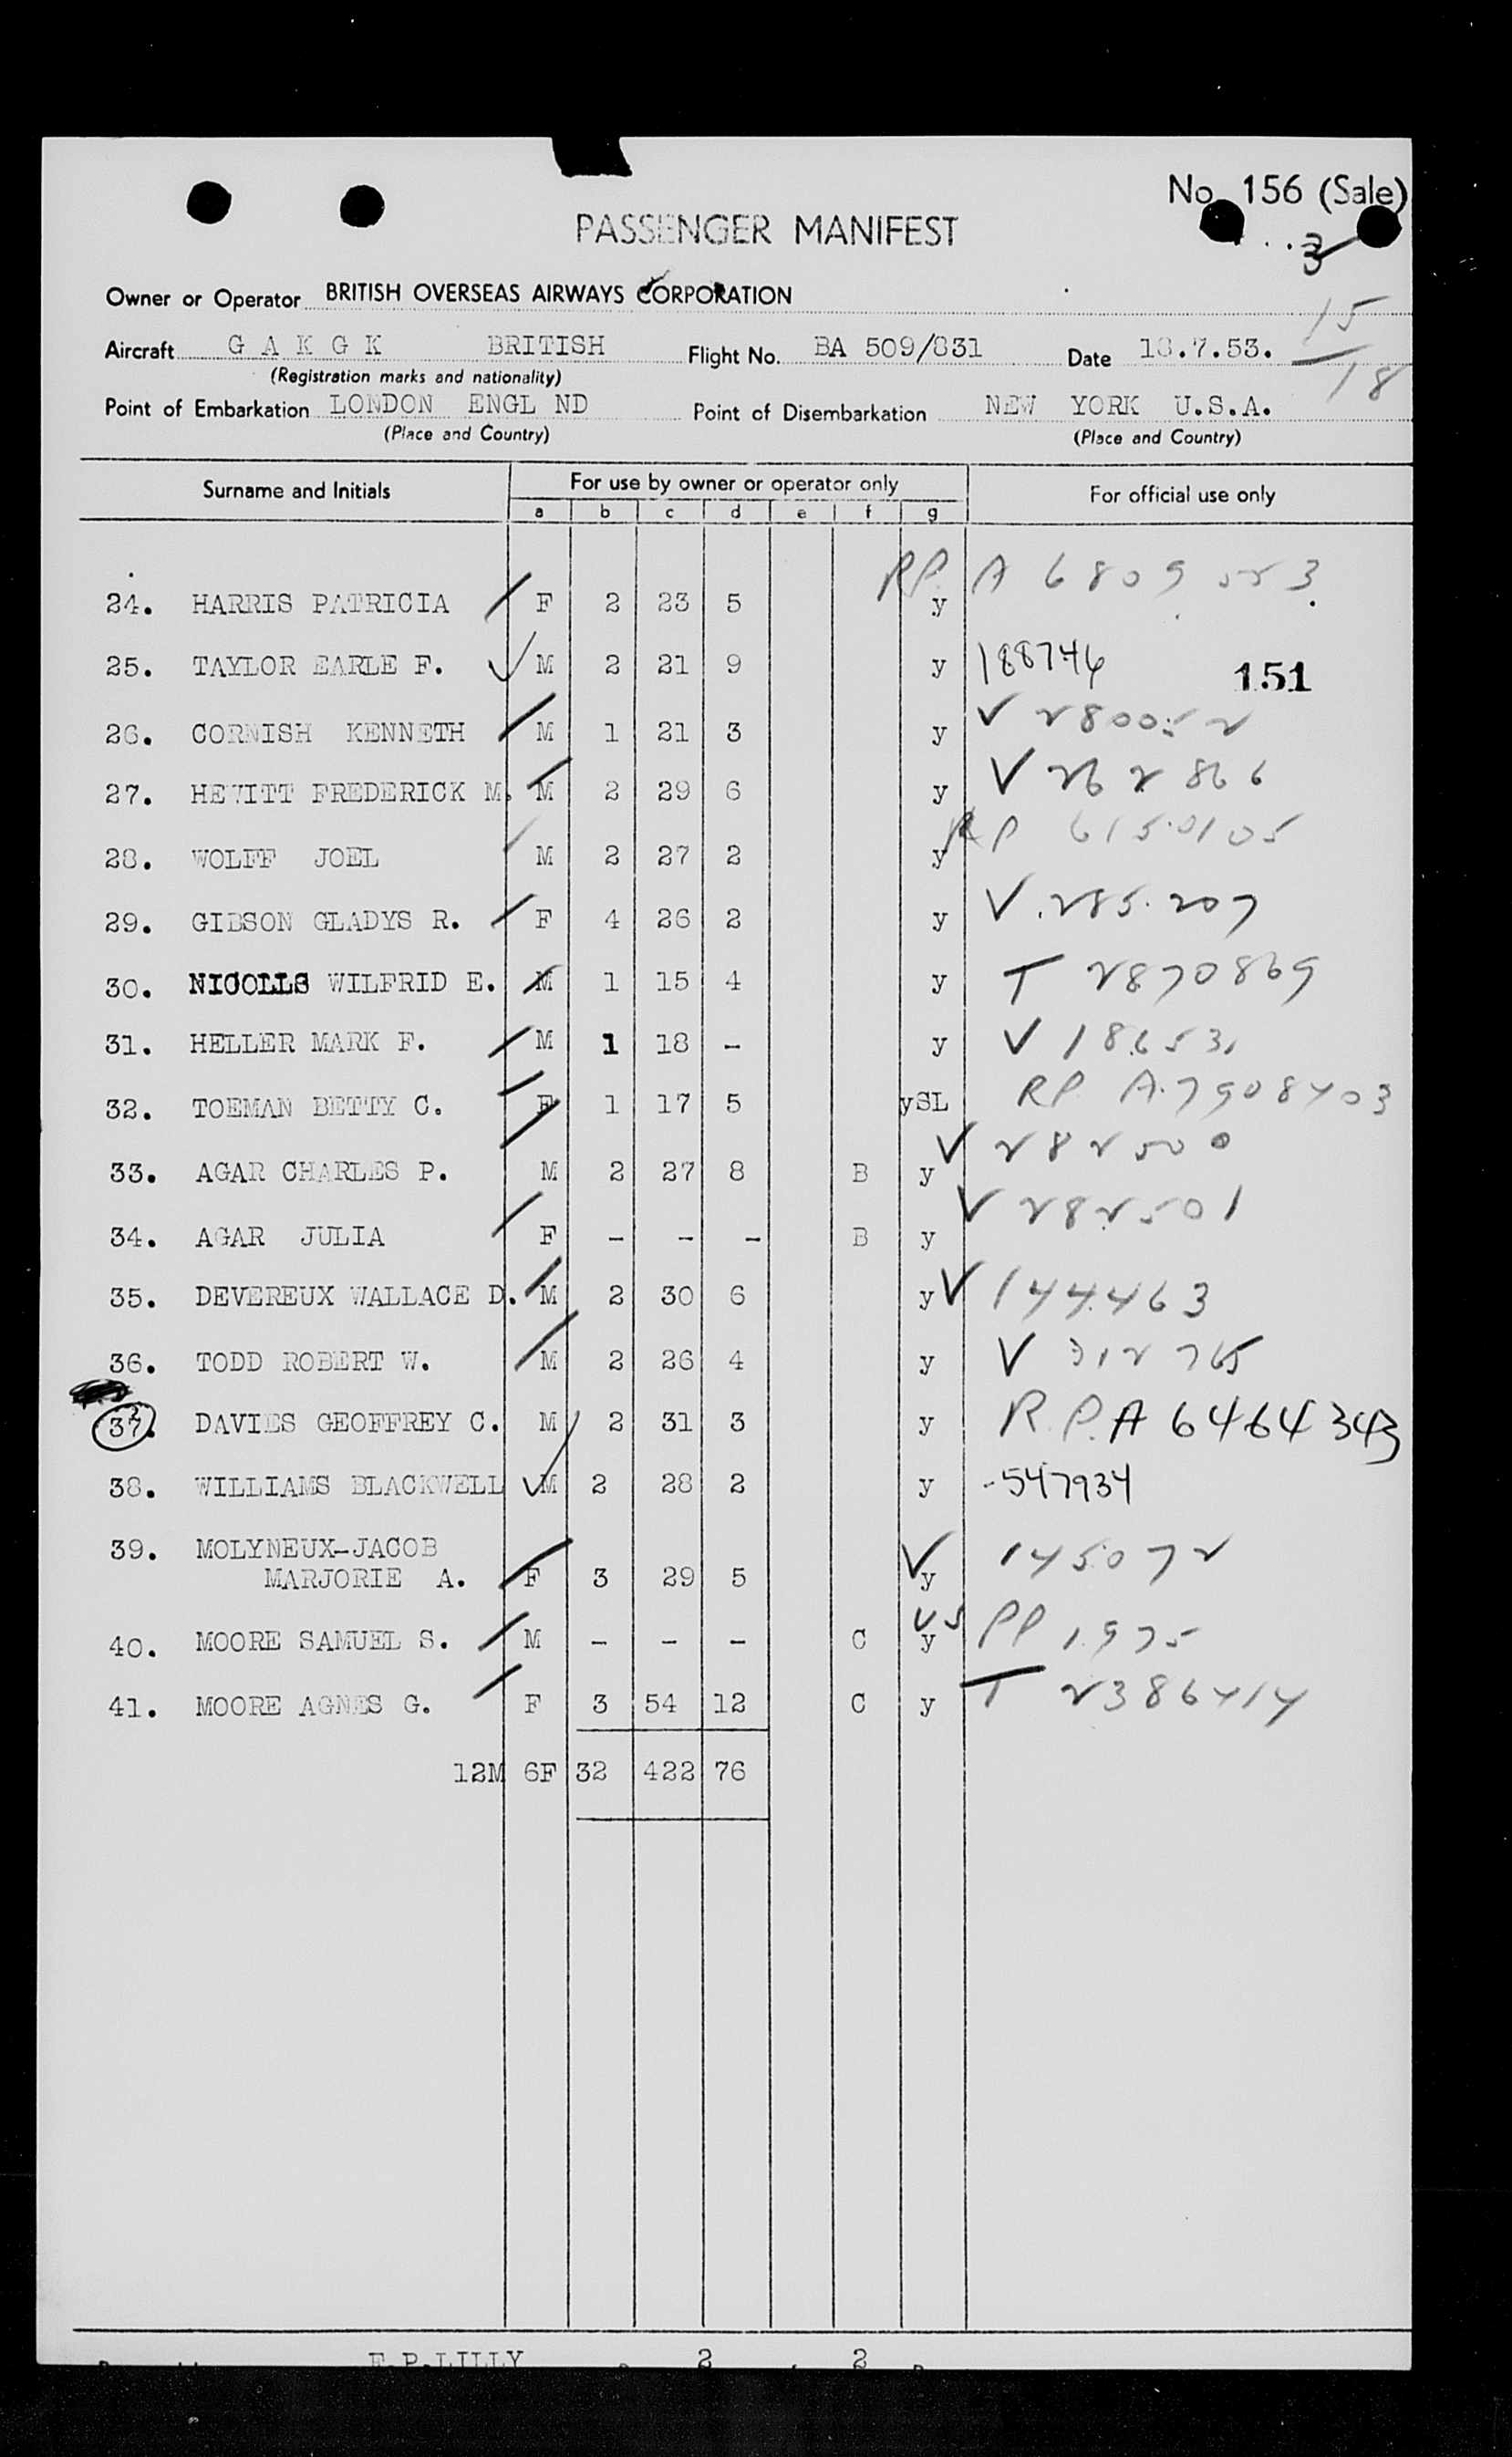 No. 156 (Sale)
PASSENGER MANIFEST
3
Owner or Operator BRITISH OVERSEAS AIRWAYS CORPORATION
15
Aircraft G A K G K BRITISH Flight No. BA 509/831 Date 18.7.53.
18
(Registration marks and nationality)
Point of Embarkation LONDON ENGL ND Point of Disembarkation NEW YORK U.S.A.
(Place and Country) (Place and Country)
Surname and Initials For use by owner or operator only For official use only
a b c d e f g
24. HARRIS PATRICIA F 2 23 5 y RP. A 6809523
25. TAYLOR EARLE F. M 2 21 9 y 188746 151
26. CORNISH KENNETH M 1 21 3 y V 280052
27. HEWITT FREDERICK M. M 2 29 6 y V 262866
28. WOLFF JOEL M 2 27 2 y RP 6150105
29. GIBSON GLADYS R. F 4 26 2 y V. 285.207
30. NICOLLS WILFRID E. M 1 15 4 y T 2870869
31. HELLER MARK F. M 1 18 - y V 18653
32. TOEMAN BETTY C. F 1 17 5 ySL RP. A.7908403
33. AGAR CHARLES P. M 2 27 8 B y V 282500
34. AGAR JULIA F - - - B y V 282501
35. DEVEREUX WALLACE D. M 2 30 6 y V 144463
36. TODD ROBERT W. M 2 26 4 y V 312765
37. DAVIES GEOFFREY C. M 2 31 3 y R.P. A 6464343
38. WILLIAMS BLACKWELL M 2 28 2 y -547934
39. MOLYNEUX-JACOB
MARJORIE A. F 3 29 5 y V 145072
40. MOORE SAMUEL S. M - - - C y US PP 1975
41. MOORE AGNES G. F 3 54 12 C y T 2386414
12M 6F 32 422 76
F.P.LILLY 2 2